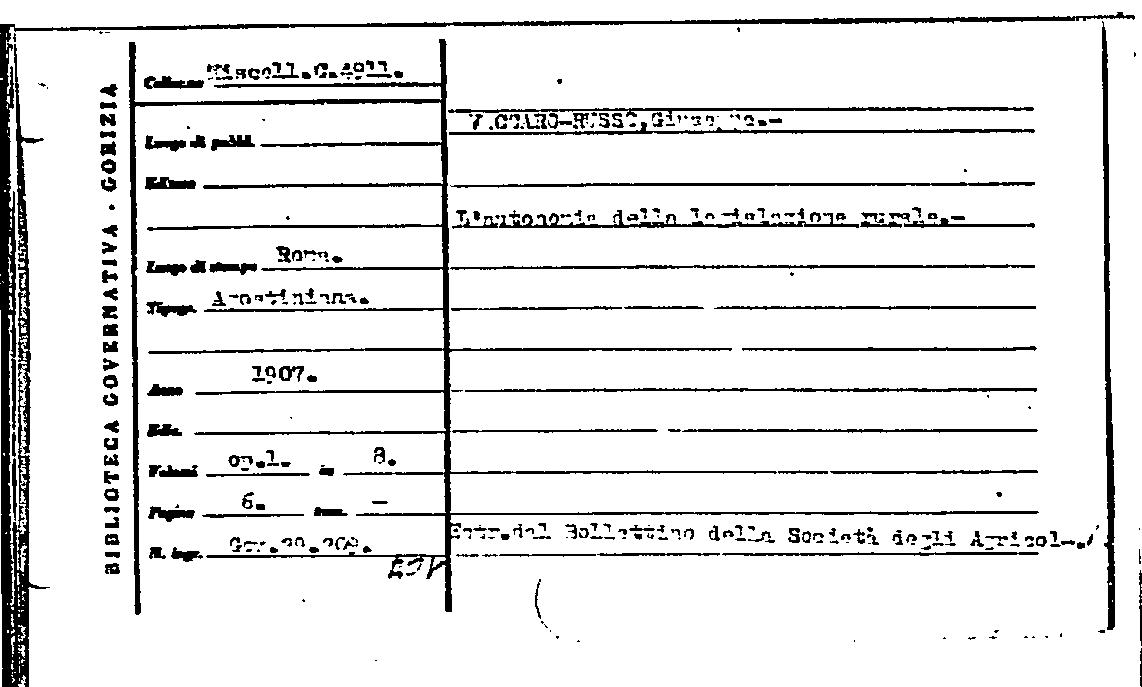 BIBLIOTECA GOVERNATIVA · GORIZIA
Colloc.ne Miscell.C.4911.
Luogo di pubbl.
Editore
Luogo di stampa Roma.
Tipogr. Agostiniana.
Anno 1907.
Ediz.
Volumi op.1. in 8.
Pagine 6. —
N. ingr. Gor.
-RUSSO,Giuseppe.-
L'autonomia della legislazione rurale.-
Estr.dal Bollettino della Società degli Agricol-.